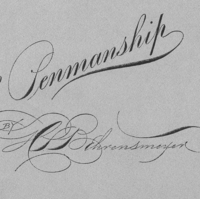 Penmanship
BY
H P Behrensmeyer